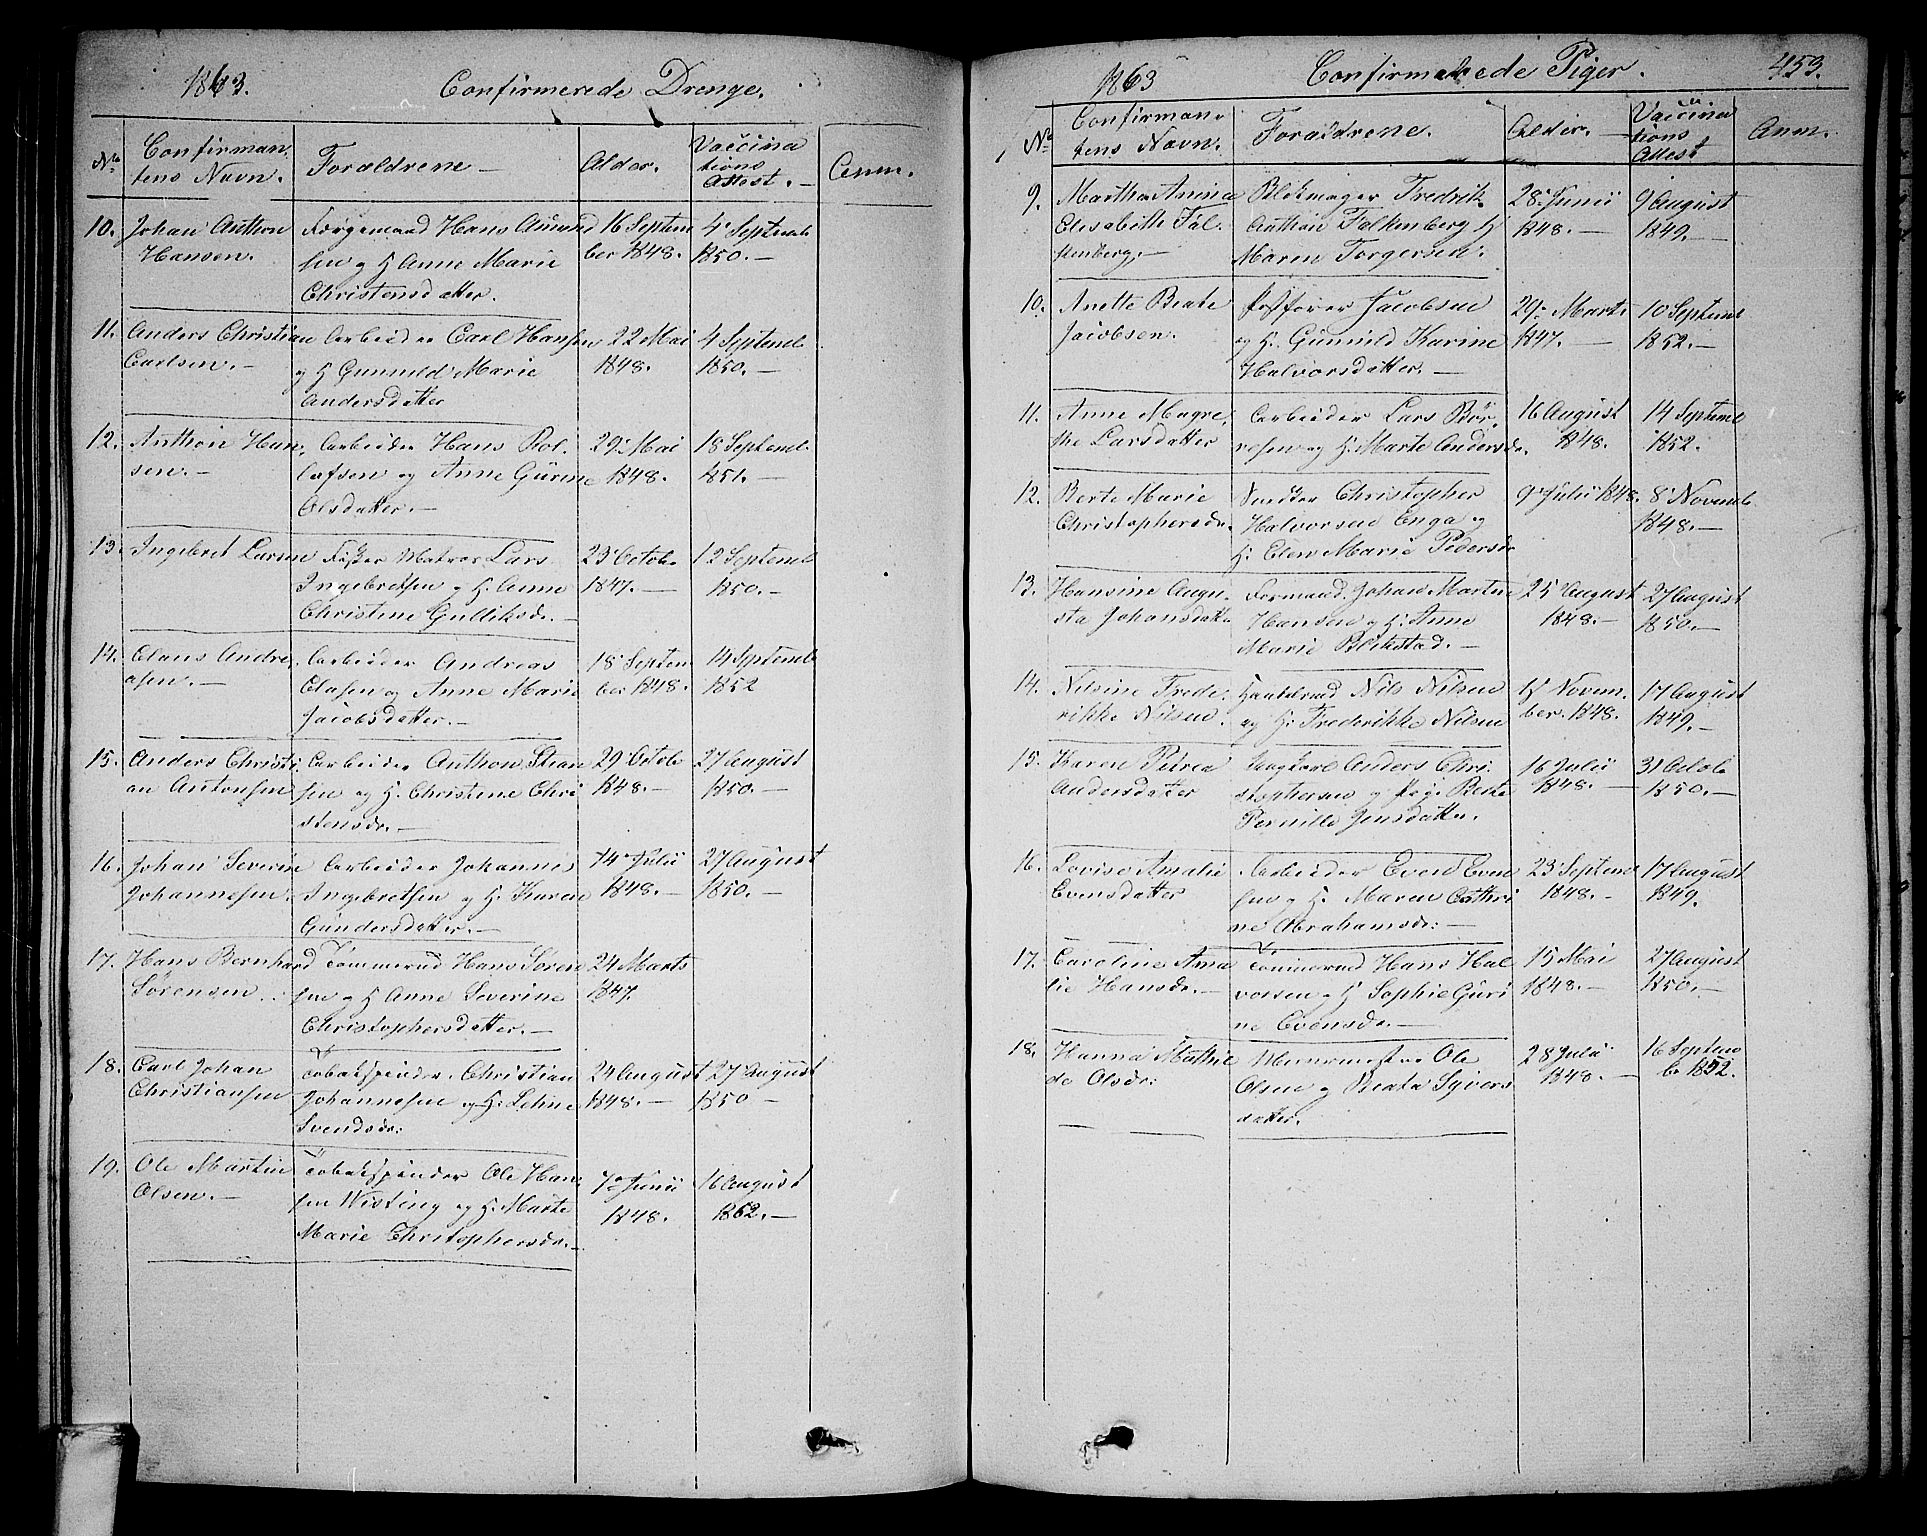 1863. Confirmerede Drenge.
No Confirman,
tens Navn. Forældrene Alder. Vaccina
tions
Attest. Anm.
10. Johan Anthon Hansen. Færgemand Hans Amund
sen og H Anne Marie
Christensdatter. 16 Septem
ber 1848. 4 Septemb
1850.
11. Anders Christian
Carlsen. Arbeider Carl Hansen
og H Gunnild Marie
Andersdatter 22 Mai
1848. 4 Septemb
1850.
12. Anthon Han,
sen. Arbeider Hans Rol,
lefsen og Anne Gurine
Olsdatter. 29 Mai
1848. 18 Septemb
1851.
13. Ingebret Larsen Matros Lars
Ingebretsen og H Anne
Christine Gulliksdr. 23 Octobr
1847. 12 Septemb
1850.
14. Claus Andre,
asen. Arbeider Andreas
Clasen og Anne Marie
Jacobsdatter. 18 Septem
ber 1848. 14 Septemb
1852
15. Anders Christi
an Antonsen Arbeider Anthon Stean
sen og H. Christine Chri
stensdr. 29 Octob
1848. 27 August
1850.
16. Johan Severin
Johannesen. Arbeider Johannes
Ingebretsen og H. Karen
Gundersdatter. 14 Julii
1848. 27 August
1850.
17. Hans Bernhard
Sørensen Tømmermd Hans Søren
sen og H Anne Severine
Christophersdatter. 24 Marts
1847.
18. Carl Johan
Christiansen Tobakspinder Christian
Johannesen og H. Seline
Svendsdr: 24 August
1848. 27 August
1850
19. Ole Martin
Olsen. Tobakspinder Ole Han,
sen Wisting og H. Marte
Marie Christophersdr. 7 Junii
1848. 16 August
1862.
1863 Confirmerede Piger. 453.
No Confirman,
tens Navn. Forældrene. Alder. Vaccina
tions
Attest Anm.
9. Martha Amina
Elisabeth Fal,
kenberg. Blikmager Fredrik
Anthon Falkenberg H
Maren Torgersen. 28 Junii
1848. 9 August
1849.
10. Anette Beate
Jacobsen. Jacobsen
og H. Gunnild Karine
Halvorsdatter. 29 Marts
1847. 10 Septemb
1852.
11. Anne Magre,
the Larsdatter Arbeider Lars Bør,
resen og H. Marte Andersdr. 16 August
1848. 14 Septemb
1852.
12. Berte Marie
Christophersdr. Snedker Christopher
Halvorsen Enga og
H: Elen Marie Pedersdr 9 Julii 1848. 8 Novemb
1848.
13. Hansine Augu,
sta Johansdatter Formand Johan Martin
Hansen og H: Anne
Marie Blikstad. 25 August
1848. 27 August
1850.
14. Nilsine Frede,
rikke Nilsen. Nils Nilsen
og H: Frederikke Nilsen 11 Novem,
ber. 1848. 17 August
1849.
15. Karen Petrea
Andersdatter Anders Chri,
stophersen og Berte
Pernille Jensdatter. 16 Julii
1848. 31 Octob
1850.
16. Lovise Amalie
Evensdatter Arbeider Even Even
sen og H. Maren Cathri
ne Abrahamsdr: 23 Septemb
1848. 17 August
1849.
17. Caroline Ama
lie Hansdr. Tømmermd Hans Hal
vorsen og H Sophie Guri
ne Evensdr. 15 Mai
1848. 27 August
1850.
18. Hanna Mathil
de Olsdr: Muurmester Ole
Olsen og Beata Syvers
datter. 28 Julii
1848. 16 Septem
b 1852.